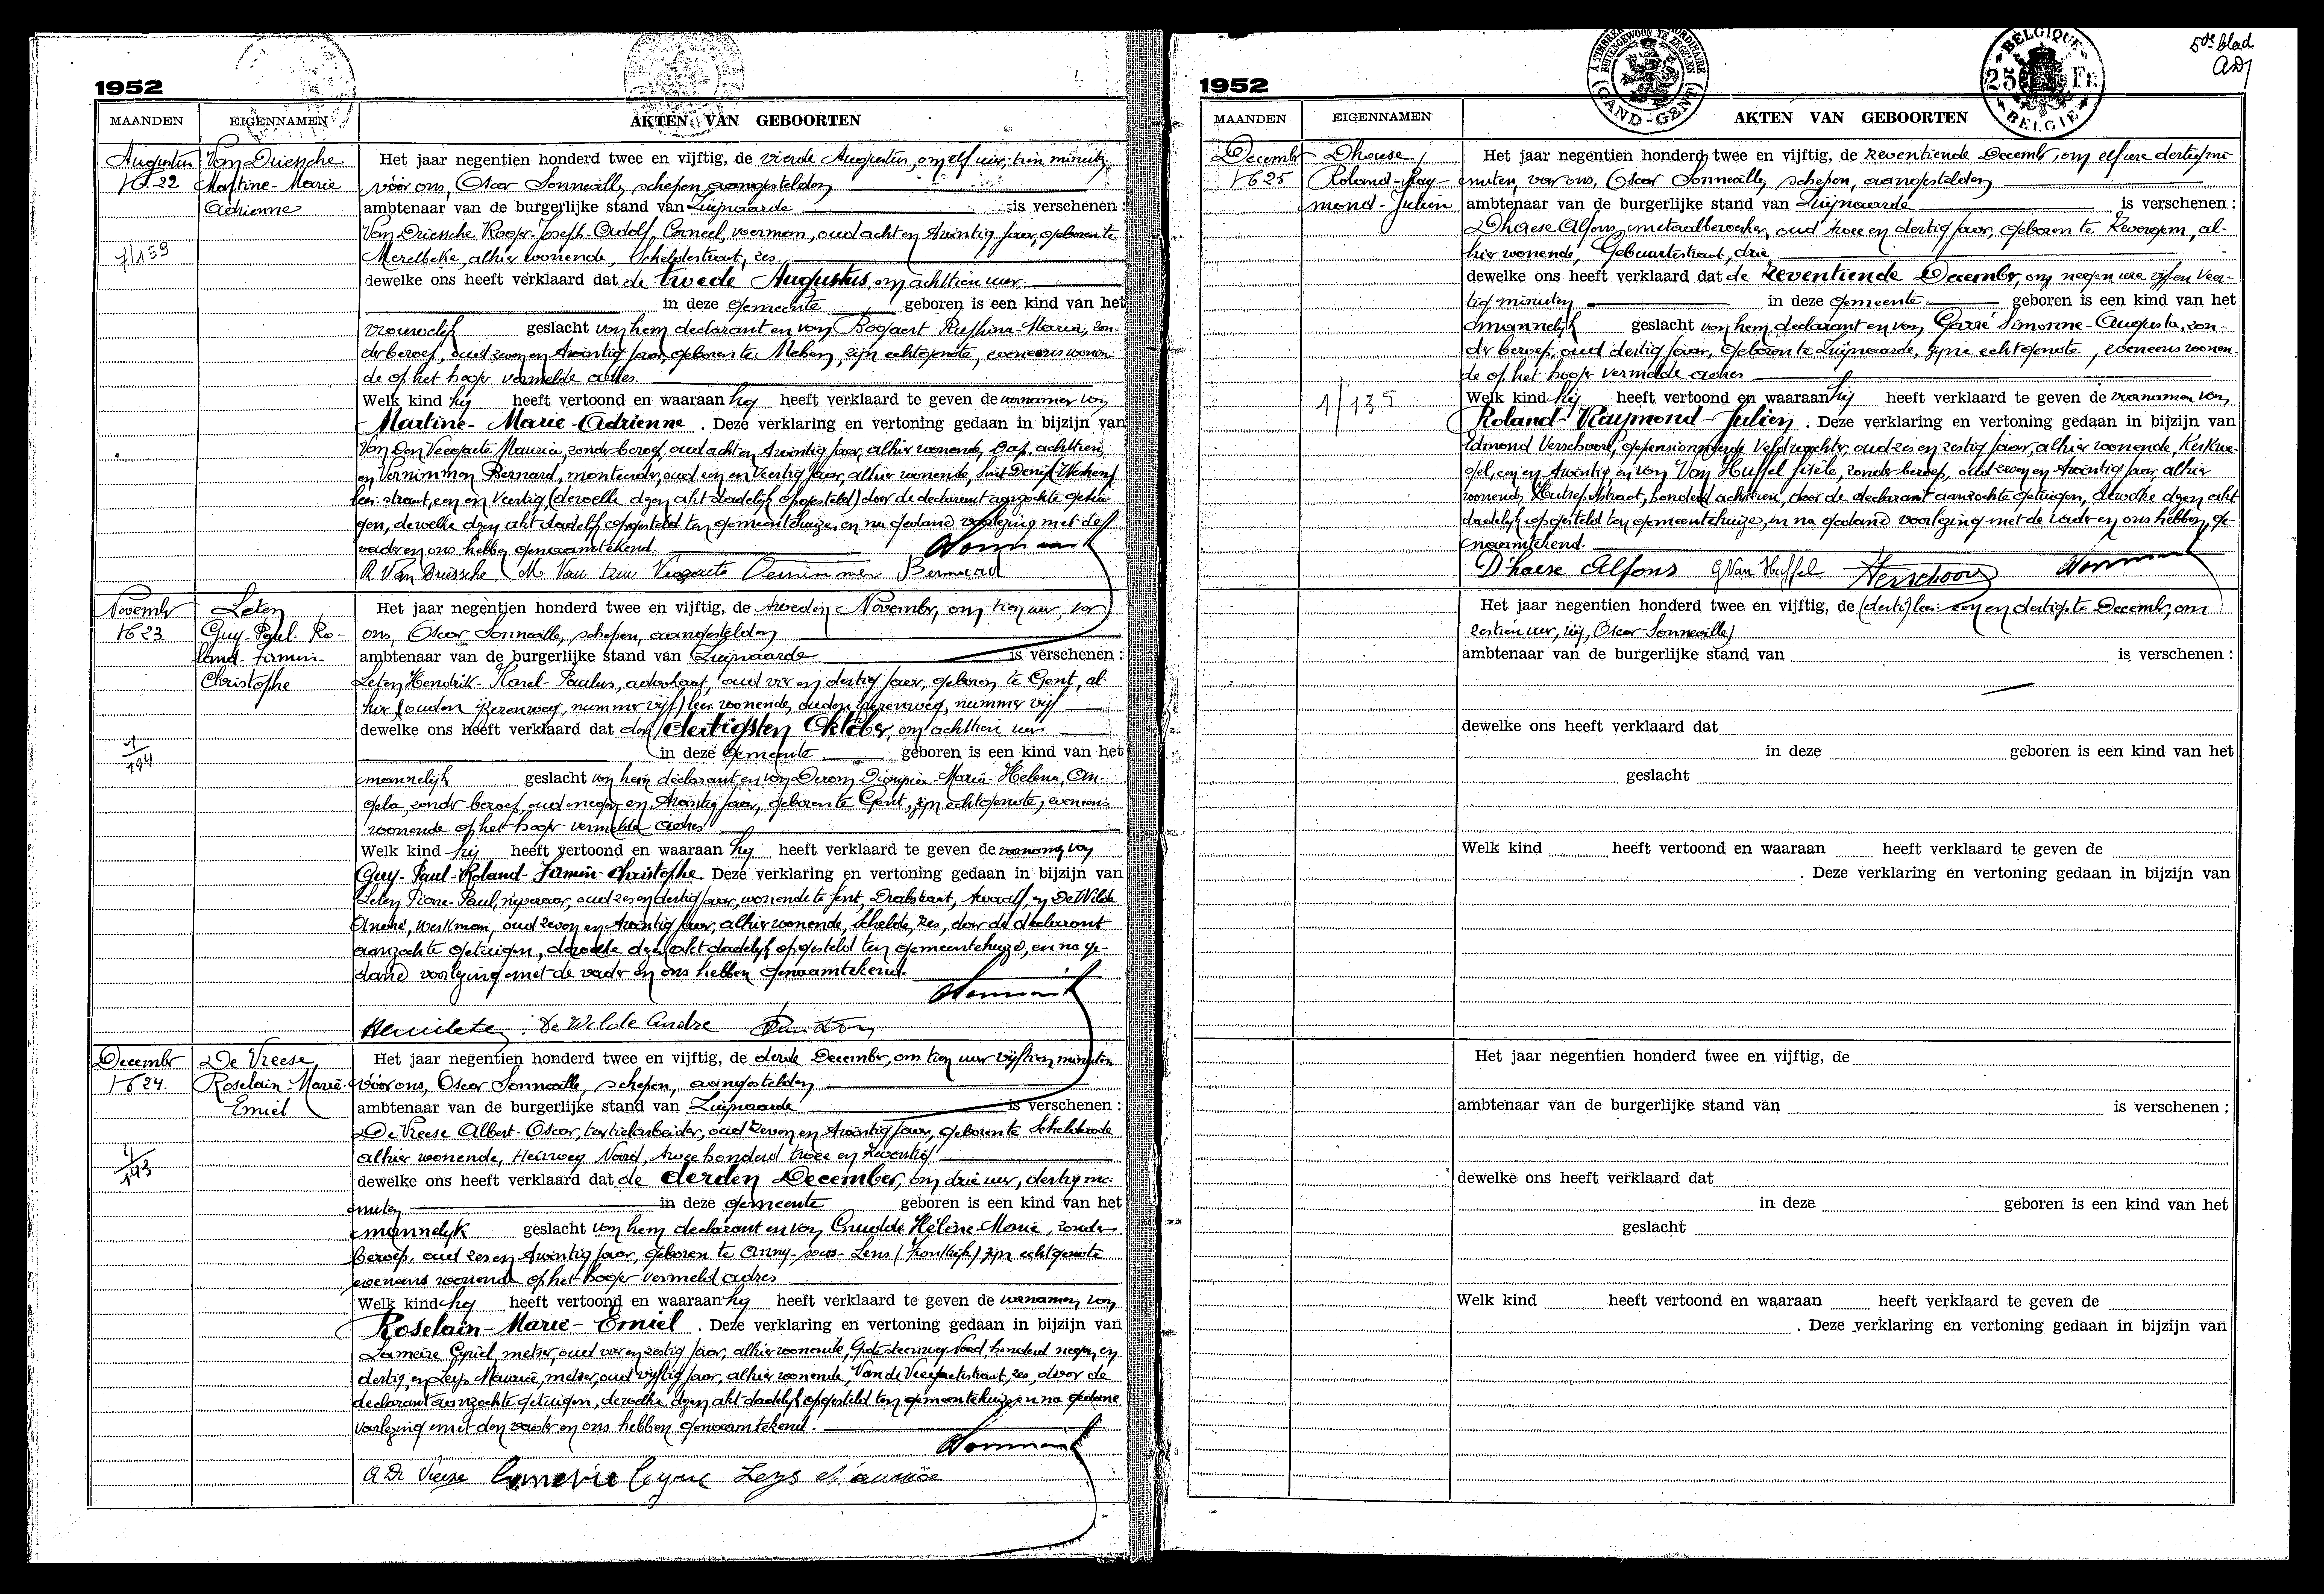 1952
MAANDEN EIGENNAMEN AKTEN VAN GEBOORTEN
Augustus
N° 22
Van Driessche
Martine-Marie
Adrienne
1/159
Het jaar negentien honderd twee en vijftig, de vierde Augustus, om elf uur, tien minuten
vóór ons, Oscar Sonneville, schepen, aangestelden
ambtenaar van de burgerlijke stand van Zwijnaarde is verschenen :
Van Driessche Roger-Joseph-Adolf, Corneel, voerman, oud acht en twintig jaar, geboren te
Merelbeke, alhier wonende, Scheldestraat, zes
dewelke ons heeft verklaard dat de twede Augustus, om achttien uur
in deze gemeente geboren is een kind van het
vrouwelijk geslacht van hem declarant en van Bogaert Maria, zon-
der beroep, oud zeven en twintig jaar, geboren te Melsen, zijn echtgenote, eveneens wonen-
de op het hoger vermelde adres.
Welk kind hij heeft vertoond en waaraan hij heeft verklaard te geven de voornamen van
Martine-Marie-Adrienne . Deze verklaring en vertoning gedaan in bijzijn van
Van Den Veegaete Maurice, zonder beroep, oud acht en twintig jaar, alhier wonende, achttien
en Vernimmen Bernard, oud en veertig jaar, alhier wonende,
straat, een en veertig, (dewelke dezen akt dadelijk opgesteld) door de declarant aanzochte getui-
gen, dewelke dezen akt dadelijk opgesteld ten gemeentehuize, en na gedane voorlezing met de
vader en ons hebben genaamtekend.
R. Van Driessche M Van den Veegaete Vernimmen Bernard
November
N° 23
Leten
Guy-Paul-Ro-
land-Firmin-
Christophe
1/194
Het jaar negentien honderd twee en vijftig, de tweeden November, om tien uur, vor
ons, Oscar Sonneville, schepen, aangestelden
ambtenaar van de burgerlijke stand van Zwijnaarde is verschenen :
Leten Hendrik-Karel-Paulus, advokaat, oud vier en dertig jaar, geboren te Gent, al-
hier (ouden ijzerenweg, nummer vijf) lees: wonende, ouden ijzerenweg, nummer vijf
dewelke ons heeft verklaard dat den dertigsten Oktober, om achttien uur
in deze gemeente geboren is een kind van het
mannelijk geslacht van hem declarant en van Derom Maria-Helena, An-
gela, zonder beroep, oud negen en twintig jaar, geboren te Gent, zijn echtgenote, eveneens
wonende op het hoger vermelde adres
Welk kind hij heeft vertoond en waaraan hij heeft verklaard te geven de voornamen van
Guy-Paul-Roland-Firmin-Christophe. Deze verklaring en vertoning gedaan in bijzijn van
Leten Pierre-Paul, nijveraar, oud zes en dertig jaar, wonende te Gent, Drabstraat, twaalf, en De Wilde
André, werkman, oud zeven en twintig jaar, alhier wonende, Schelde, zes, door de declarant
aanzochte getuigen, dewelke dezen akt dadelijk opgesteld ten gemeentehuize, en na ge-
dane voorlezing met de vader en ons hebben genaamtekend.
De Wilde Andre
December
N° 24.
De Vreese
Roselain Marie-
Emiel
1/143
Het jaar negentien honderd twee en vijftig, de derde December, om tien uur vijftien minuten
vóór ons, Oscar Sonneville, schepen, aangestelden
ambtenaar van de burgerlijke stand van Zwijnaarde is verschenen :
De Vreese Albert-Oscar, textielarbeider, oud zeven en twintig jaar, geboren te Schelderode
alhier wonende, Heirweg Noord, twee honderd twee en zeventig
dewelke ons heeft verklaard dat de derden December, om drie uur, dertig mi-
nuten in deze gemeente geboren is een kind van het
mannelijk geslacht van hem declarant en van Hélène-Marie, zonder
beroep, oud zes en twintig jaar, geboren te Annay-sous-Lens (Frankrijk) zijn echtgenote
eveneens wonende op het hoger vermeld adres
Welk kind hij heeft vertoond en waaraan hij heeft verklaard te geven de voornamen van
Roselain-Marie-Emiel . Deze verklaring en vertoning gedaan in bijzijn van
Lameire Cyriel, metser, oud vier en zestig jaar, alhier wonende, Grote steenweg Noord, honderd negen en
dertig, en Leys Maurice, metser, oud vijftig jaar, alhier wonende, Van de Veegaetestraat, zes, door de
declarant aanzochte getuigen, dewelke dezen akt dadelijk opgesteld ten gemeentehuize en na gedane
voorlezing met den vader en ons hebben genaamtekend.
A De Vreese Lameire Cyriel Leys Maurice
5de blad
1952
A TIMBRER EXTRAORDINAIRE BUITENGEWOON TE ZEGELEN GAND-GENT
BELGIQUE 25 Fr. BELGIE
MAANDEN EIGENNAMEN AKTEN VAN GEBOORTEN
December
N° 25
Dhaese,
Roland-Ray-
mond-Julien
1/135
Het jaar negentien honderd twee en vijftig, de zeventiende December, om elf ure dertig mi-
nuten, voor ons, Oscar Sonneville, schepen, aangestelden
ambtenaar van de burgerlijke stand van Zwijnaarde is verschenen :
Dhaese Alfons, metaalbewerker, oud twee en dertig jaar, geboren te Zevergem, al-
hier wonende, Gebuurtestraat, drie
dewelke ons heeft verklaard dat de zeventiende December, om negen ure vijf en veer-
tig minuten in deze gemeente geboren is een kind van het
mannelijk geslacht van hem declarant en van Garré Simonne-Augusta, zon-
der beroep, oud dertig jaar, geboren te Zwijnaarde, zijne echtgenote, eveneens wonen-
de op het hoger vermelde adres
Welk kind hij heeft vertoond en waaraan hij heeft verklaard te geven de voornamen van
Roland-Raymond-Julien . Deze verklaring en vertoning gedaan in bijzijn van
Edmond Verschoore, gepensionneerde Veldwachter, oud zes en zestig jaar, alhier wonende,
een en twintig, en van Van Huffel Gisèle, zonder beroep, oud zeven en twintig jaar alhier
wonende, Hutsepotstraat, honderd achttien, door de declarant aanzochte getuigen, dewelke dezen akt
dadelijk opgesteld ten gemeentehuize, en na gedane voorlezing met de vader en ons hebben, ge-
naamtekend.
D'haese Alfons G Van Huffel Verschoore
Het jaar negentien honderd twee en vijftig, de (derti) lees: een en dertigste December, om
zestien uur, wij, Oscar Sonneville)
ambtenaar van de burgerlijke stand van is verschenen :
dewelke ons heeft verklaard dat
in deze geboren is een kind van het
geslacht
Welk kind heeft vertoond en waaraan heeft verklaard te geven de
. Deze verklaring en vertoning gedaan in bijzijn van
Het jaar negentien honderd twee en vijftig, de
ambtenaar van de burgerlijke stand van is verschenen :
dewelke ons heeft verklaard dat
in deze geboren is een kind van het
geslacht
Welk kind heeft vertoond en waaraan heeft verklaard te geven de
. Deze verklaring en vertoning gedaan in bijzijn van